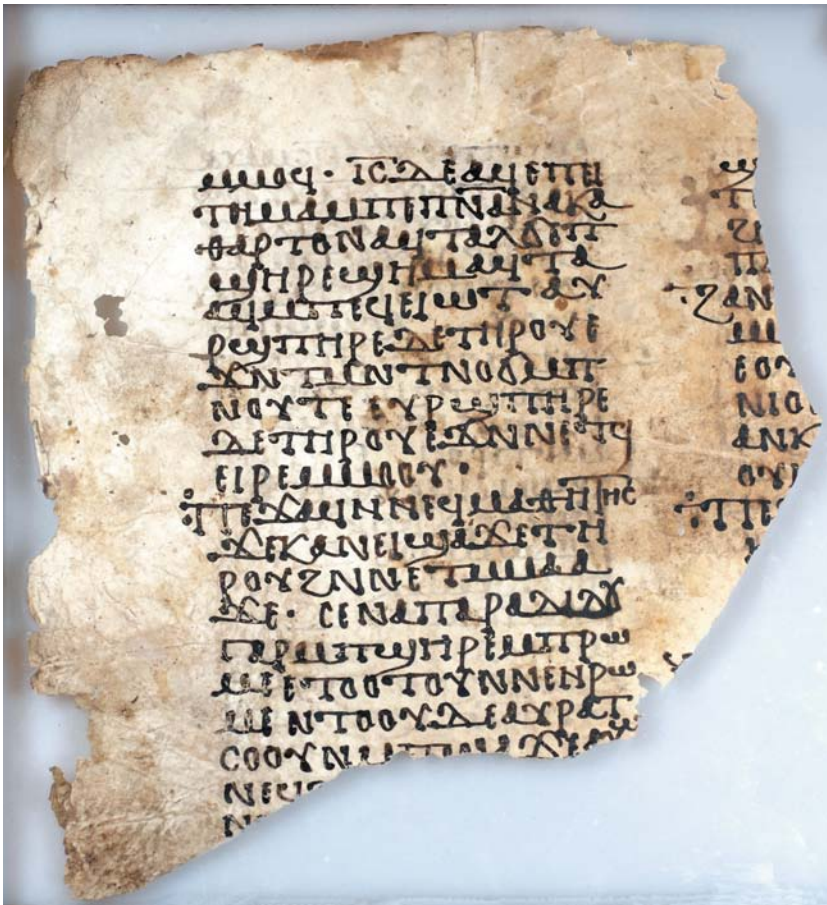 ⲙⲙⲟϥ · ⲓ̅ⲥ̅ⲇⲉⲁϥⲉⲡⲓ
ⲧⲏⲙⲁⲙⲡⲉⲡ̅ⲛ̅ⲁ̅ⲛⲁⲕⲁ
ⲑⲁⲣⲧⲟⲛⲁϥⲧⲁⲗϭⲉⲡ
ϣⲏⲣⲉϣⲏⲙⲁϥⲧⲁ
ⲁϥⲙⲡⲉϥⲉⲓⲱⲧ ⲁⲩ
ⲣϣⲡⲏⲣⲉⲇⲉⲧⲏⲣⲟⲩⲉ
ϫⲛⲧⲙⲛⲧⲛⲟϭⲙⲡ
ⲛⲟⲩⲧⲉ ⲉⲩⲣϣⲡⲏⲣⲉ
ⲇⲉⲧⲏⲣⲟⲩⲉϫⲛⲛⲉⲧϥ
ⲉⲓⲣⲉⲙⲙⲟⲟⲩ·
ⲡⲉϫⲁϥⲛⲛⲉϥⲙⲁⲑⲏⲧⲏⲥ
ϫⲉⲕⲁⲛⲉⲓϣⲁϫⲉⲧⲏ
ⲣⲟⲩϩⲛⲛⲉⲧⲙⲙⲁⲁ
ϫⲉ· ⲥⲉⲛⲁⲡⲁⲣⲁⲇⲓⲇⲟⲩ
ⲅⲁⲣⲙⲡϣⲏⲣⲉⲙⲡⲣⲱ
ⲙⲉⲉⲧⲟⲟⲧⲟⲩⲛⲛⲉⲛⲣⲱ
ⲙⲉⲛⲧⲟⲟⲩⲇⲉⲁⲩⲣⲁⲧ
ⲥⲟⲟⲩⲛⲙⲡ
ⲛⲉϥ
ⲛ
ϣ
ⲧ
ϩ
ⲡ
ϩⲁⲛ
ⲙ
ⲉⲟⲩ
ⲛⲓⲟ
ⲁⲛⲕ
ⲟⲩ
ⲡⲉ